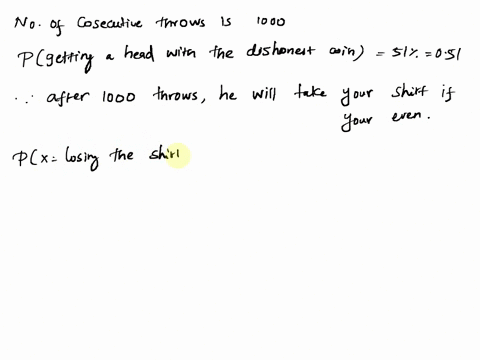 No. of Cosecutive throws is 1000
P(getting a head with the dishonest coin) = 51% = 0.51
∵ after 1000 throws, he will take your shirt if
your even.
P(x = losing the shirt